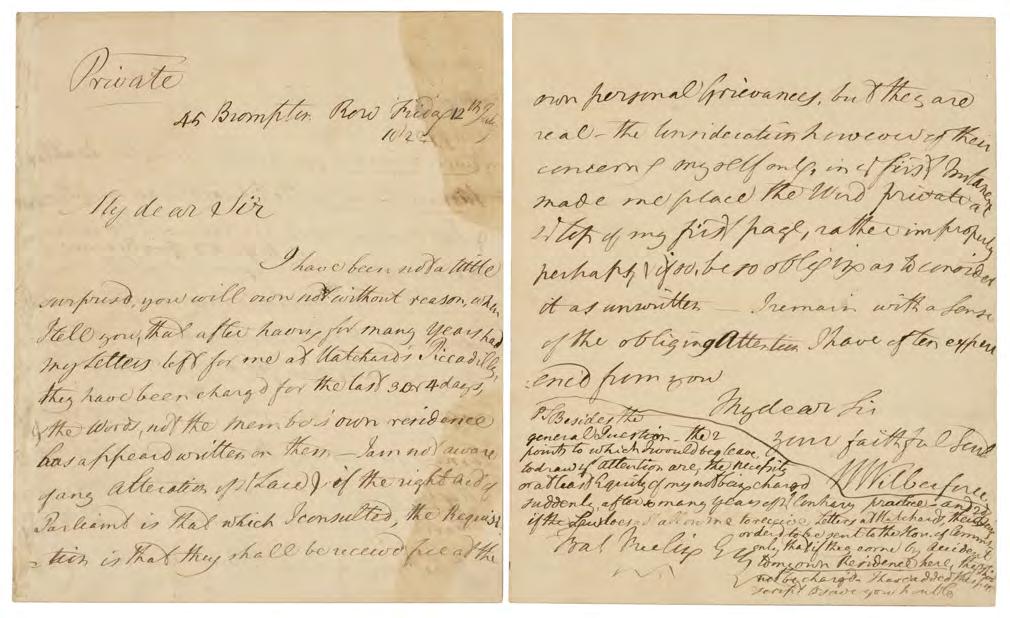 Private
45 Brompton Row Friday 12th July
1822
My dear Sir
I have been not a little
surprised, you will own not without reason, when
I tell you, that after having for many Years had
my Letters left for me at Hatchard's Piccadilly,
they have been charg'd for the last 3 or 4 days,
& the words, not the member's own residence
has appeard written on them - I am not aware
of any Alteration of ye Law & if the right Act of
Parliamt is that which I consulted, the Requisi
-tion is that they shall be received free at the
own personal Grievances, but they are
real - the Consideration however of their
concerning myself only, in ye first Instance
made me place the Word private a
ye top of my first page, rather improperly
perhaps, if so, be so obliging as to consider
it as unwritten - I remain with a Sense
of the obliging Attention I have often experi
-enc'd from you
My dear Sir
your faithful Servt
W Wilberforce
PS Besides the
general Question - the 2
points to which I would beg leave
to draw yr attention are, the Necessity
or at least Equity of my not being chargd
suddenly, after so many years of ye Contrary practice - and
if the Law does allow me to receive Letters at Hatchard's, then
orderd to be sent to the Ho. of Commns
only, that if they come by Accident
to my own Residence here, they
not be charg'd. I have added this post
script to save you trouble